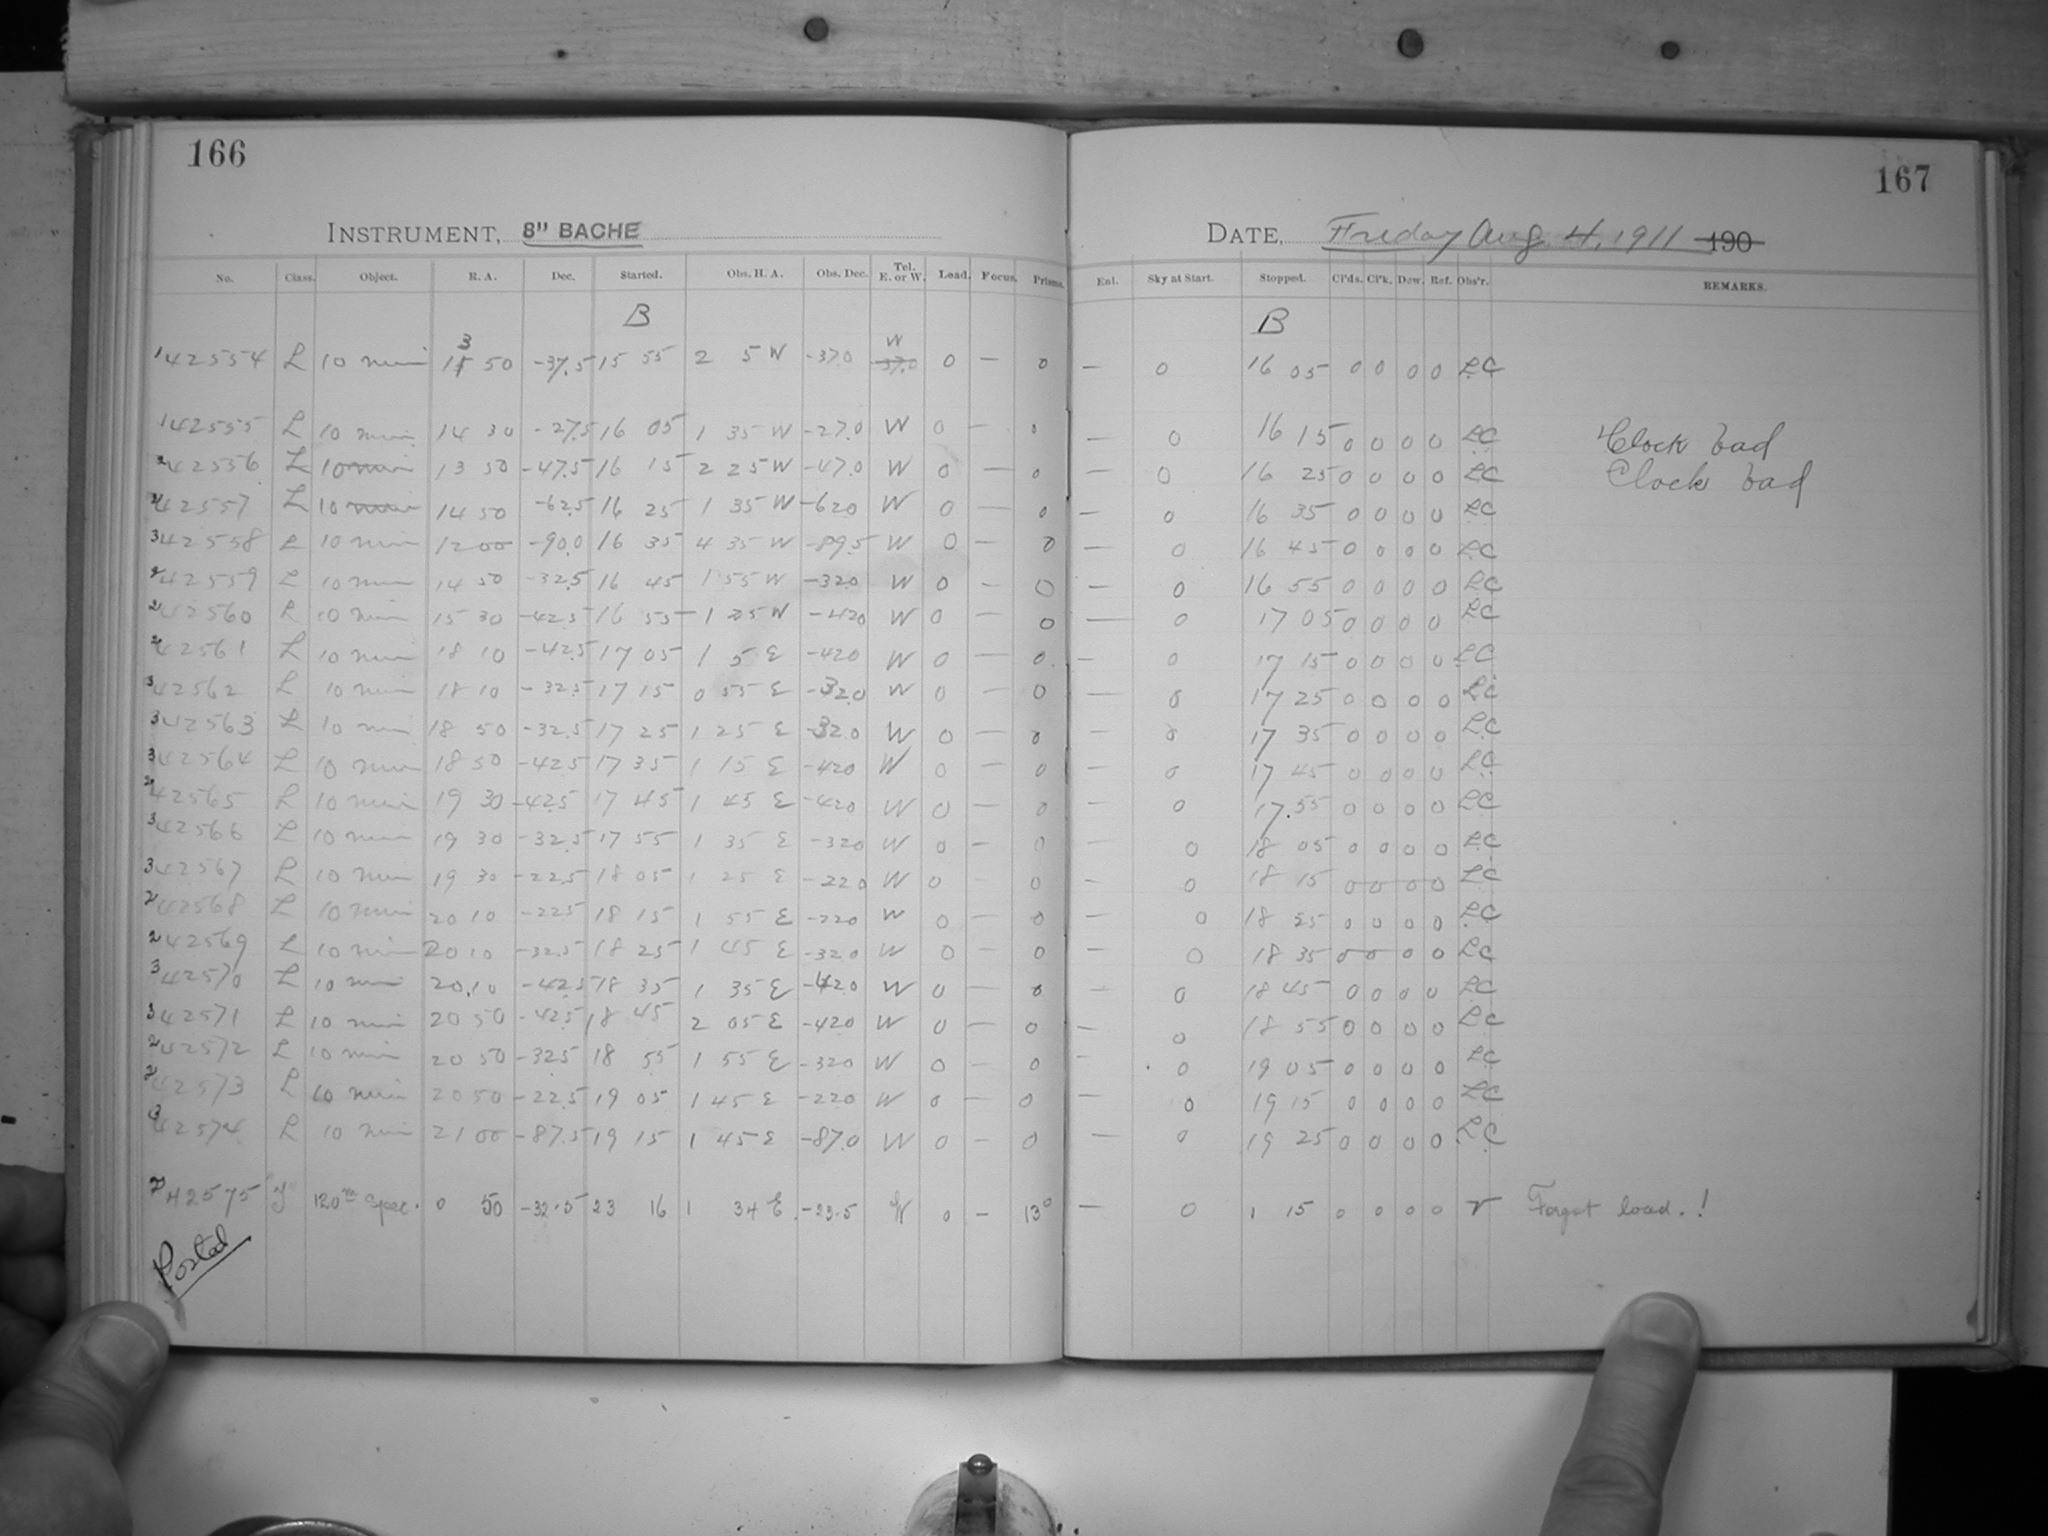 166
167
INSTRUMENT, 8" BACHE
DATE, Friday Aug. 4, 1911 190
No. Class. Object. R. A. Dec. Started. Obs. H. A. Obs. Dec. Tel. E. or W. Load. Focus. Prisms. Enl. Sky at Start. Stopped. Cl'ds. Cl'k. Dew. Ref. Obs'r. REMARKS.
B B
42554 L 10 min 13 50 -37.5 15 55 2 5 W -37.0 W 0 — 0 — 0 16 05 0 0 0 0 LC
42555 L 10 min 14 30 -27.5 16 05 1 35 W -27.0 W 0 — 0 — 0 16 15 0 0 0 0 LC Clock bad
42556 L 10 min 13 50 -47.5 16 15 2 25 W -47.0 W 0 — 0 — 0 16 25 0 0 0 0 LC Clock bad
42557 L 10 min 14 50 -62.5 16 25 1 35 W -620 W 0 — 0 — 0 16 35 0 0 0 0 LC
42558 L 10 min 12 00 -90.0 16 35 4 35 W -89.5 W 0 — 0 — 0 16 45 0 0 0 0 LC
42559 L 10 min 14 50 -32.5 16 45 1 55 W -320 W 0 — 0 — 0 16 55 0 0 0 0 LC
42560 L 10 min 15 30 -42.5 16 55 1 25 W -420 W 0 — 0 — 0 17 05 0 0 0 0 LC
42561 L 10 min 18 10 -42.5 17 05 1 5 E -420 W 0 — 0 — 0 17 15 0 0 0 0 LC
42562 L 10 min 18 10 -32.5 17 15 0 55 E -320 W 0 — 0 — 0 17 25 0 0 0 0 LC
42563 L 10 min 18 50 -32.5 17 25 1 25 E -320 W 0 — 0 — 0 17 35 0 0 0 0 LC
42564 L 10 min 18 50 -425 17 35 1 15 E -420 W 0 — 0 — 0 17 45 0 0 0 0 LC
42565 L 10 min 19 30 -425 17 45 1 45 E -420 W 0 — 0 — 0 17.55 0 0 0 0 LC
42566 L 10 min 19 30 -32.5 17 55 1 35 E -320 W 0 — 0 — 0 18 05 0 0 0 0 LC
42567 L 10 min 19 30 -22.5 18 05 1 25 E -220 W 0 — 0 — 0 18 15 0 0 0 0 LC
42568 L 10 min 20 10 -225 18 15 1 55 E -220 W 0 — 0 — 0 18 25 0 0 0 0 LC
42569 L 10 min 20 10 -32.5 18 25 1 45 E -320 W 0 — 0 — 0 18 35 0 0 0 0 LC
42570 L 10 min 20.10 -42.5 18 35 1 35 E -420 W 0 — 0 — 0 18 45 0 0 0 0 LC
42571 L 10 min 20 50 -425 18 45 2 05 E -420 W 0 — 0 — 0 18 55 0 0 0 0 LC
42572 L 10 min 20 50 -325 18 55 1 55 E -320 W 0 — 0 — 0 19 05 0 0 0 0 LC
42573 L 10 min 20 50 -22.5 19 05 1 45 E -220 W 0 — 0 — 0 19 15 0 0 0 0 LC
42574 L 10 min 21 00 -87.5 19 15 1 45 E -870 W 0 — 0 — 0 19 25 0 0 0 0 LC
42575 120m spec. 0 50 -32.5 23 16 1 34 E -23.5 W 0 — 13° — 0 1 15 0 0 0 0 Forgot load.!
Posted